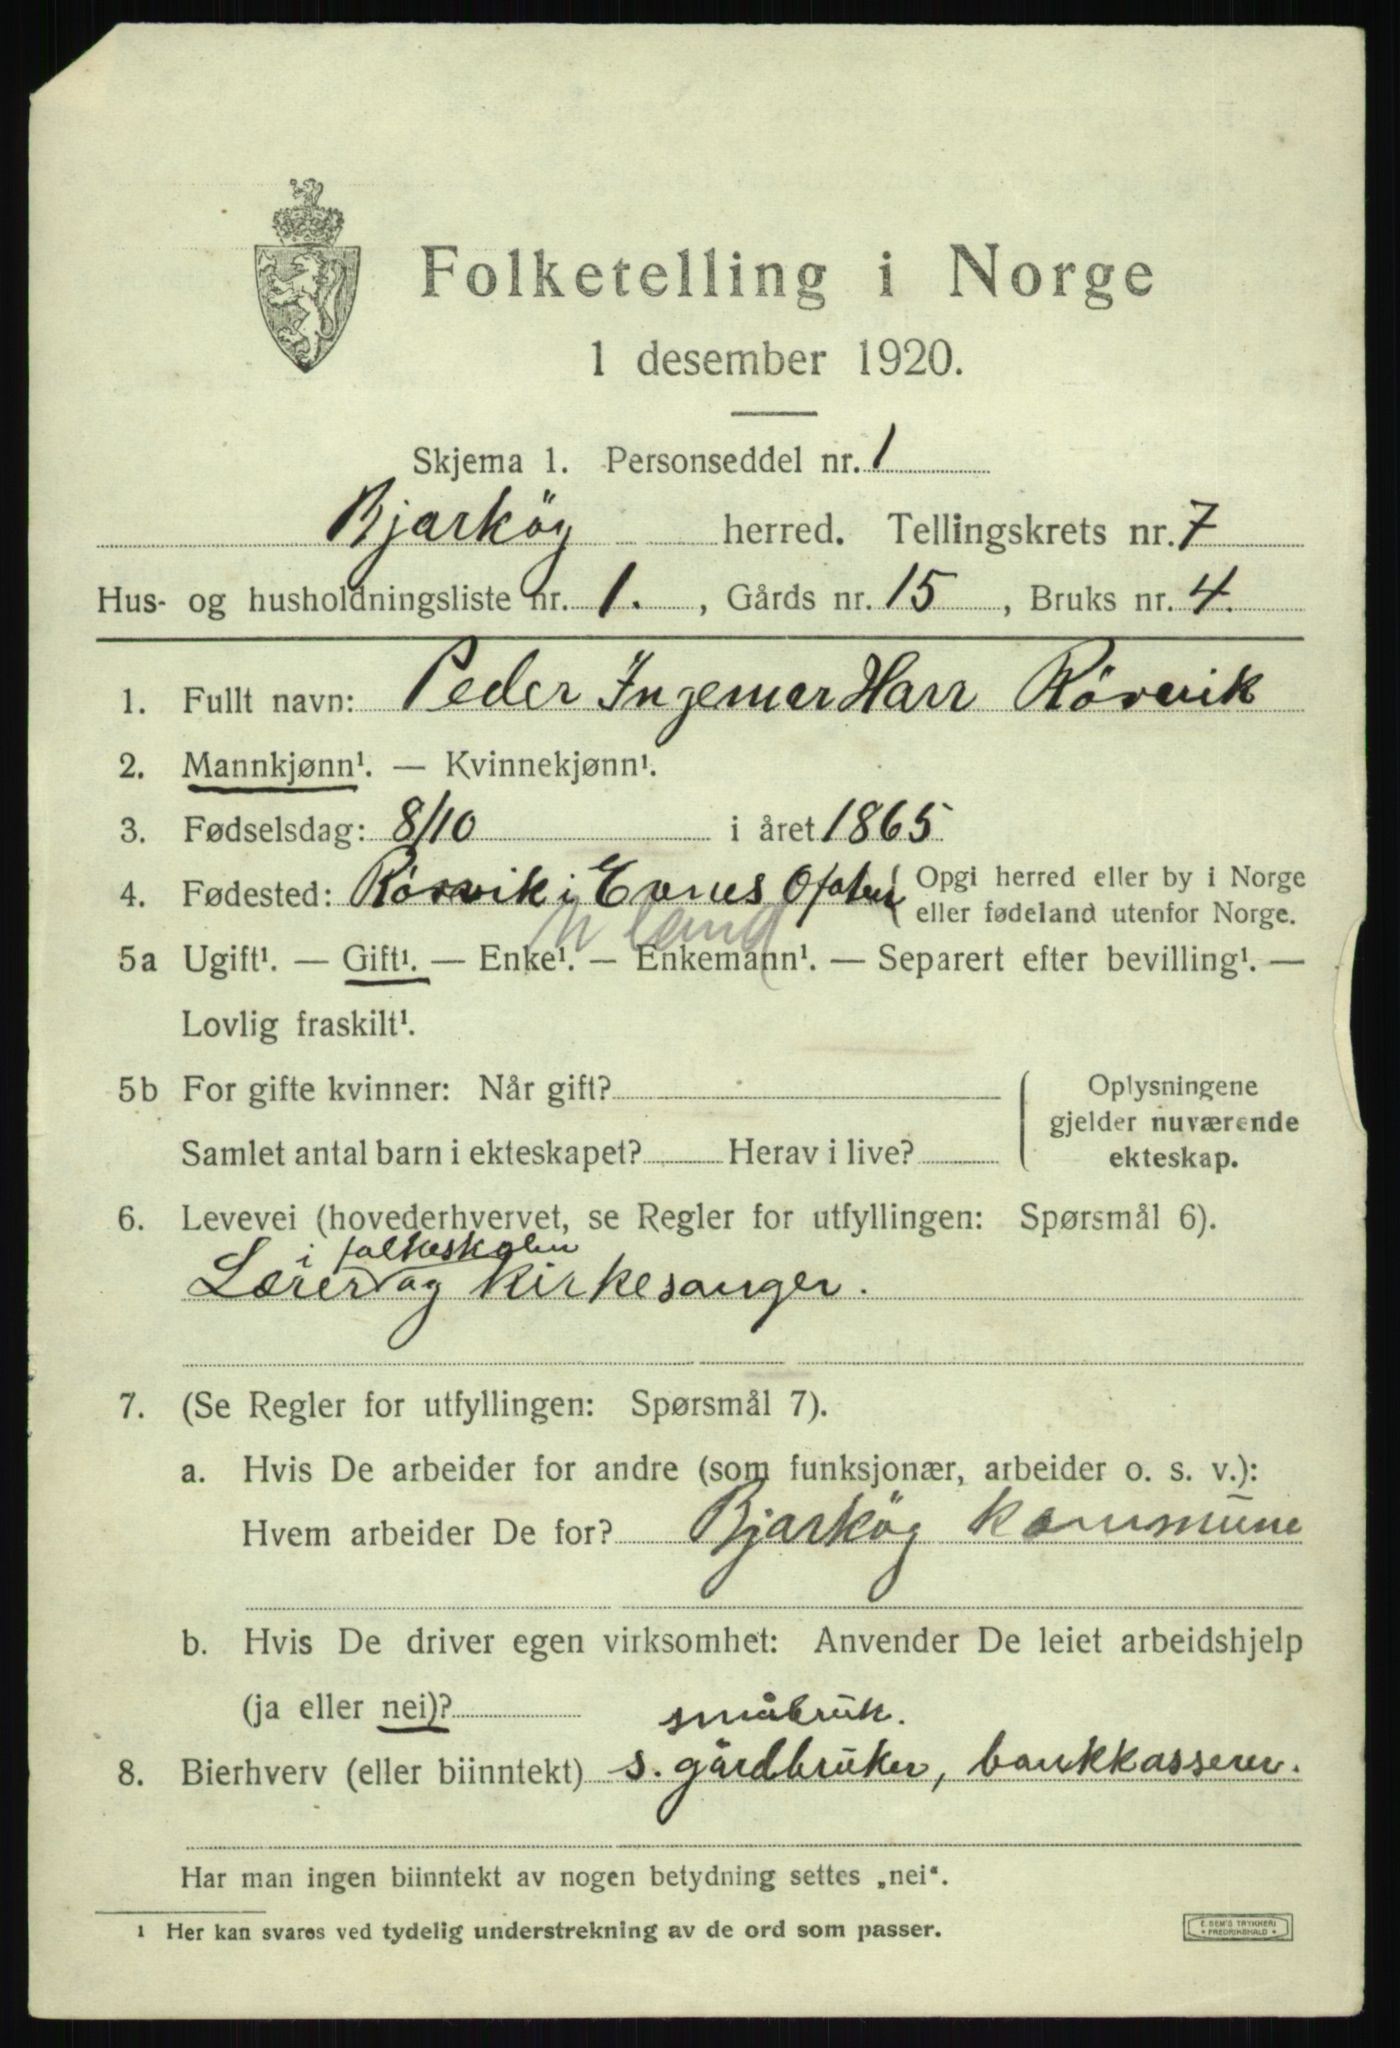 Folketelling i Norge
1 desember 1920.
Skjema 1. Personseddel nr. 1
Bjarköy herred. Tellingskrets nr. 7
Hus- og husholdningsliste nr. 1. , Gårds nr. 15 , Bruks nr. 4.
1. Fullt navn: Peder Ingemar Harr Rörvik
2. Mannkjønn¹. — Kvinnekjønn¹.
3. Fødselsdag: 8/10 i året 1865
4. Fødested: Rörvik i Evenes Ofoten ( Opgi herred eller by i Norge
eller fødeland utenfor Norge.
N land
5a Ugift¹. — Gift¹. — Enke¹. — Enkemann¹. — Separert efter bevilling¹. —
Lovlig fraskilt¹.
5b For gifte kvinner: Når gift? ( Oplysningene
gjelder nuværende
Samlet antal barn i ekteskapet? Herav i live? ekteskap.
6. Levevei (hovederhvervet, se Regler for utfyllingen: Spørsmål 6).
i folkeskolen
Lærer og kirkesanger.
7. (Se Regler for utfyllingen: Spørsmål 7).
a. Hvis De arbeider for andre (som funksjonær, arbeider o. s. v.):
Hvem arbeider De for? Bjarköy kommune
b. Hvis De driver egen virksomhet: Anvender De leiet arbeidshjelp
(ja eller nei)?
småbruk.
8. Bierhverv (eller biinntekt) s. gårdbruker, bankkasserer.
Har man ingen biinntekt av nogen betydning settes „nei“.
¹ Her kan svares ved tydelig understrekning av de ord som passer.
E. SEM'S TRYKKERI
* FREDRIKSHALD *